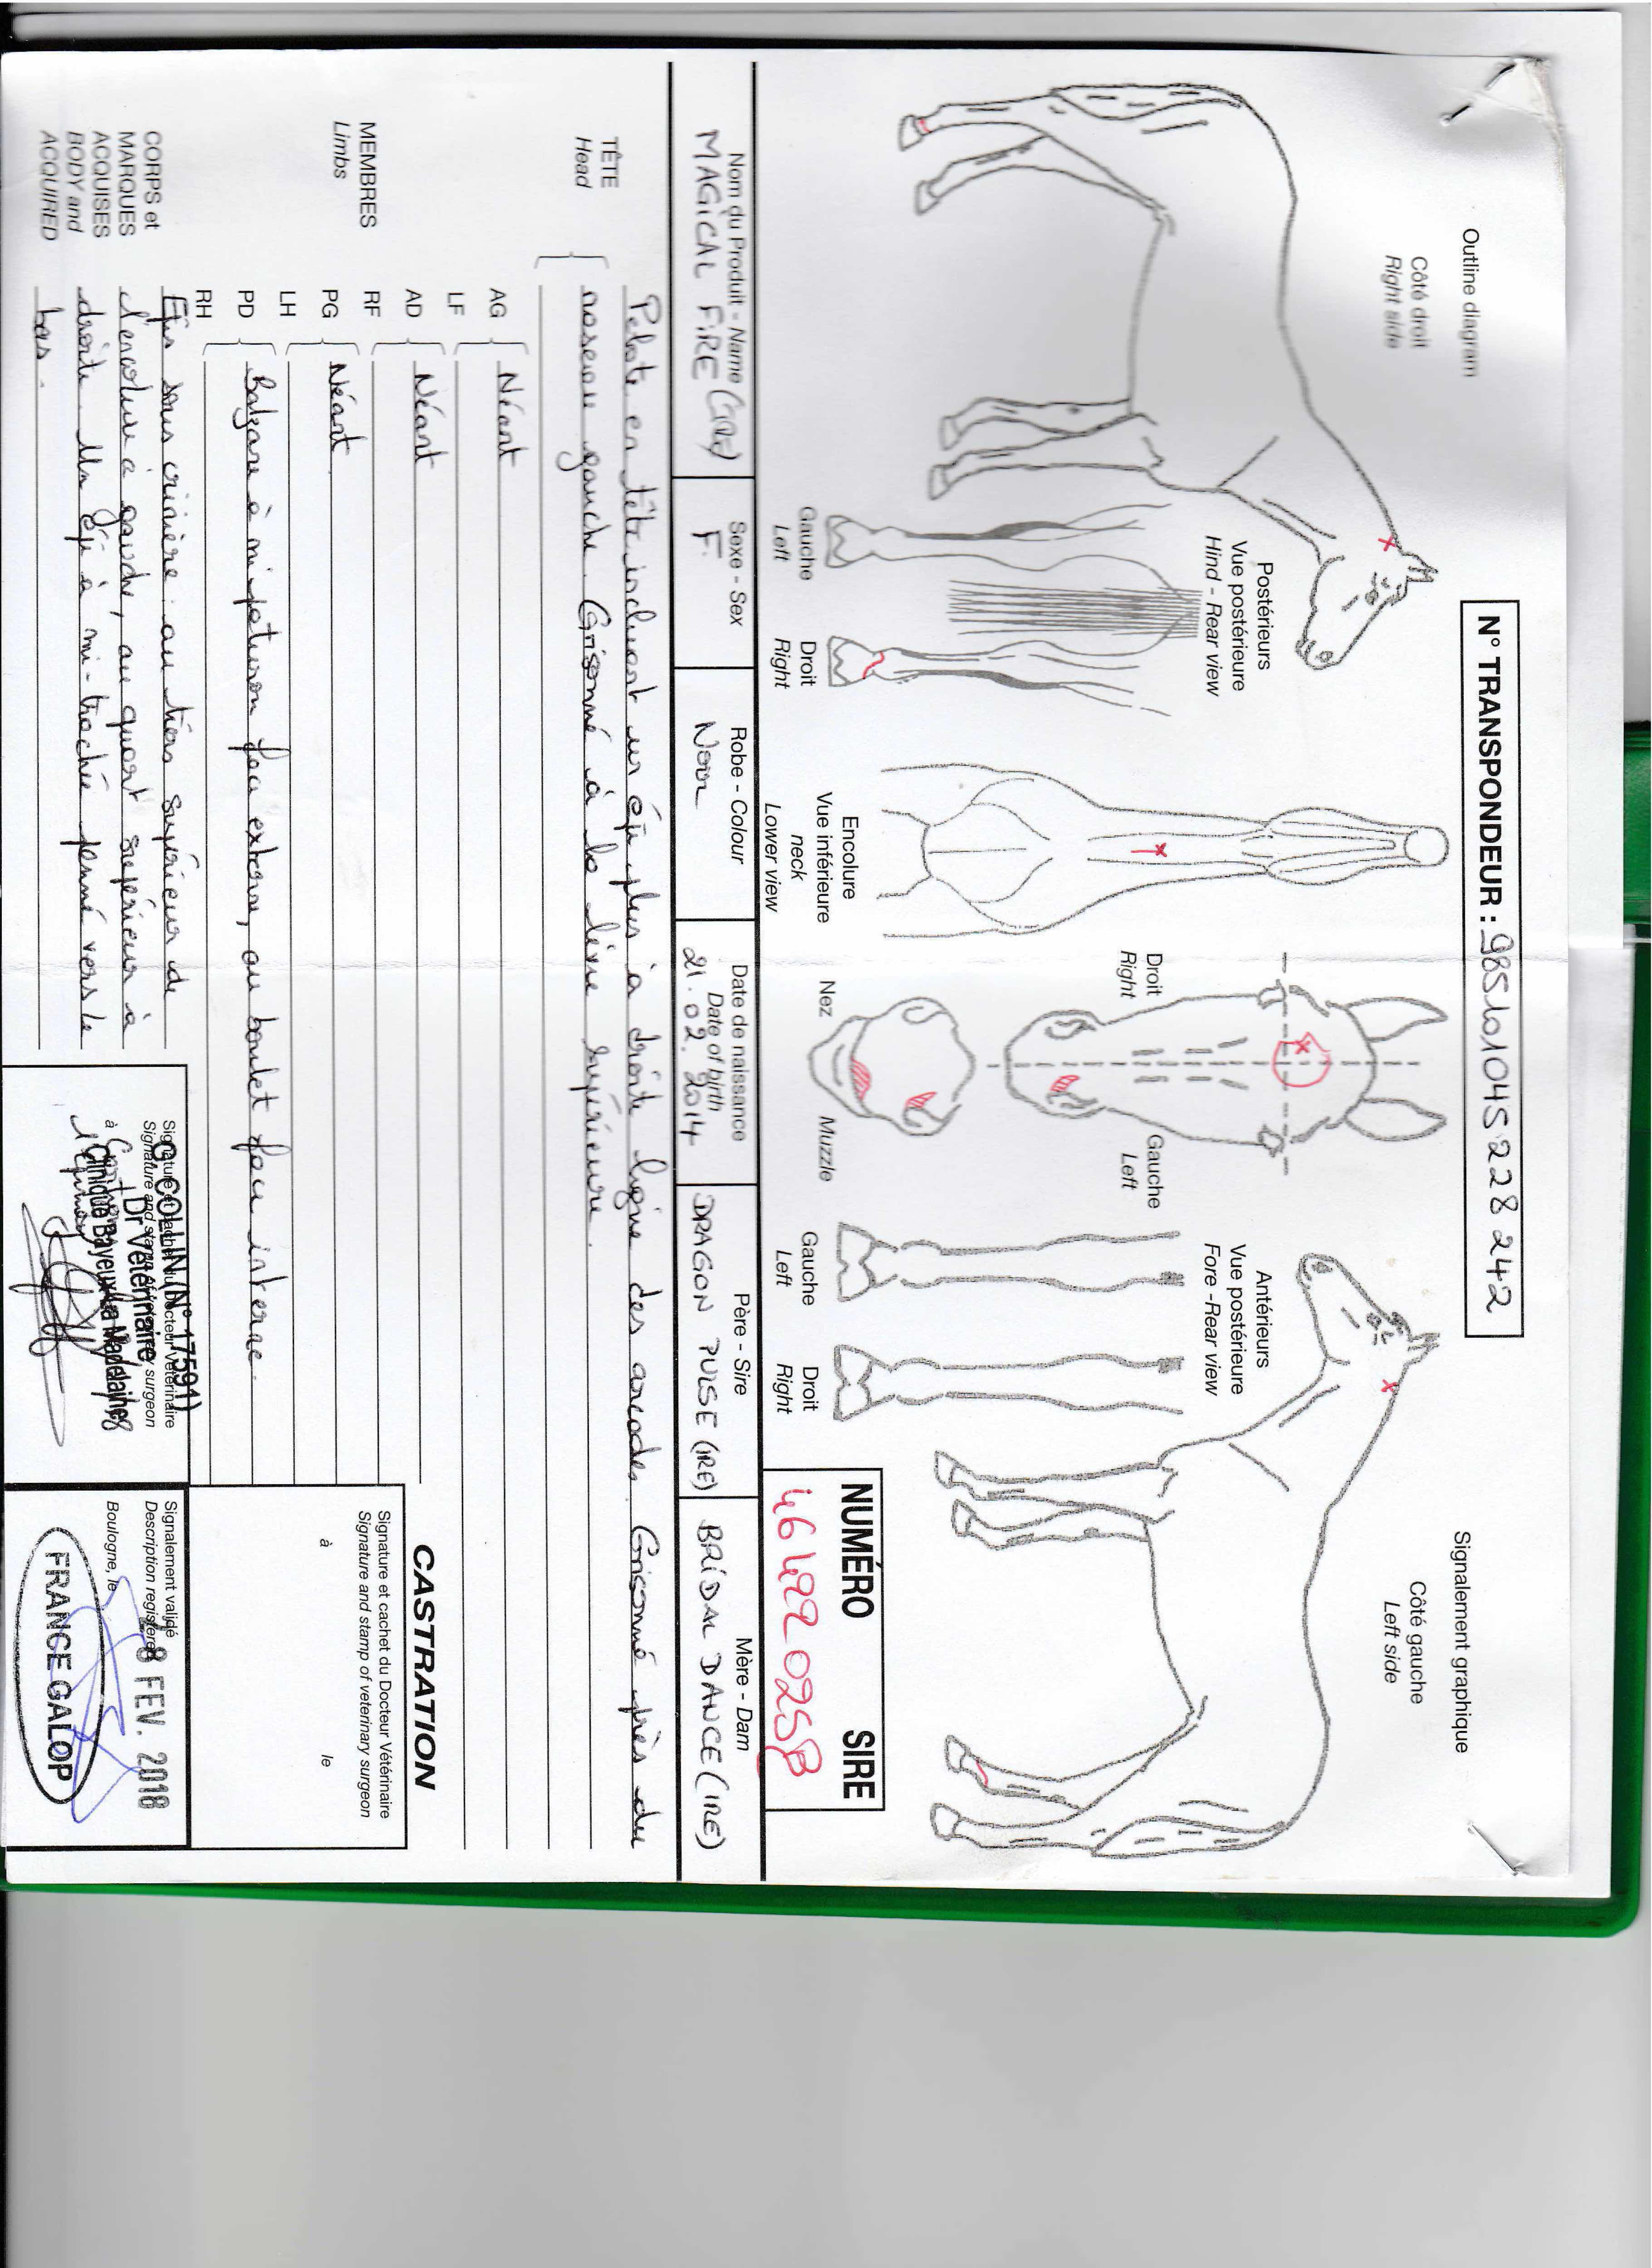 Outline diagram
Côté droit
Right side
N° TRANSPONDEUR : 985101045228242
Signalement graphique
Côté gauche
Left side
Postérieurs
Vue postérieure
Hind - Rear view
Gauche
Left
Droit
Right
Encolure
Vue inférieure
neck
Lower view
Droit
Right
Gauche
Left
Nez
Muzzle
Antérieurs
Vue postérieure
Fore -Rear view
Gauche
Left
Droit
Right
NUMÉRO SIRE
Nom du Produit - Name
MAGICAL FIRE
Sexe - Sex
F.
Robe - Colour
Noir
Date de naissance
Date of birth
21.02.2014
Père - Sire
DRAGON PULSE (IRE)
Mère - Dam
BRIDAL DANCE (IRE)
TÊTE
Head
Pelote en tête incluant un épi plus à droite ligne des arcades. Grisonné près du
naseau gauche. Grisonné à la lèvre supérieure.
MEMBRES
Limbs
AG
LF
Néant
AD
RF
Néant
PG
LH
Néant
PD
RH
Balzane à mi-paturon face externe, au boulet face interne.
CORPS et
MARQUES
ACQUISES
BODY and
ACQUIRED
Epis sous crinière : au tiers supérieur de
l'encolure à gauche, au quart supérieur à
droite. Un épi à mi-trachée penné vers le
bas.
CASTRATION
Signature et cachet du Docteur Vétérinaire
Signature and stamp of veterinary surgeon
à le
Signature et cachet du Docteur Vétérinaire
Signature and stamp of veterinary surgeon
à
G COLLIN (N° 17591)
Dr Vétérinaire
Clinique Bayeux
Signalement validé
Description registered
Boulogne, le
8 FEV. 2018
FRANCE GALOP